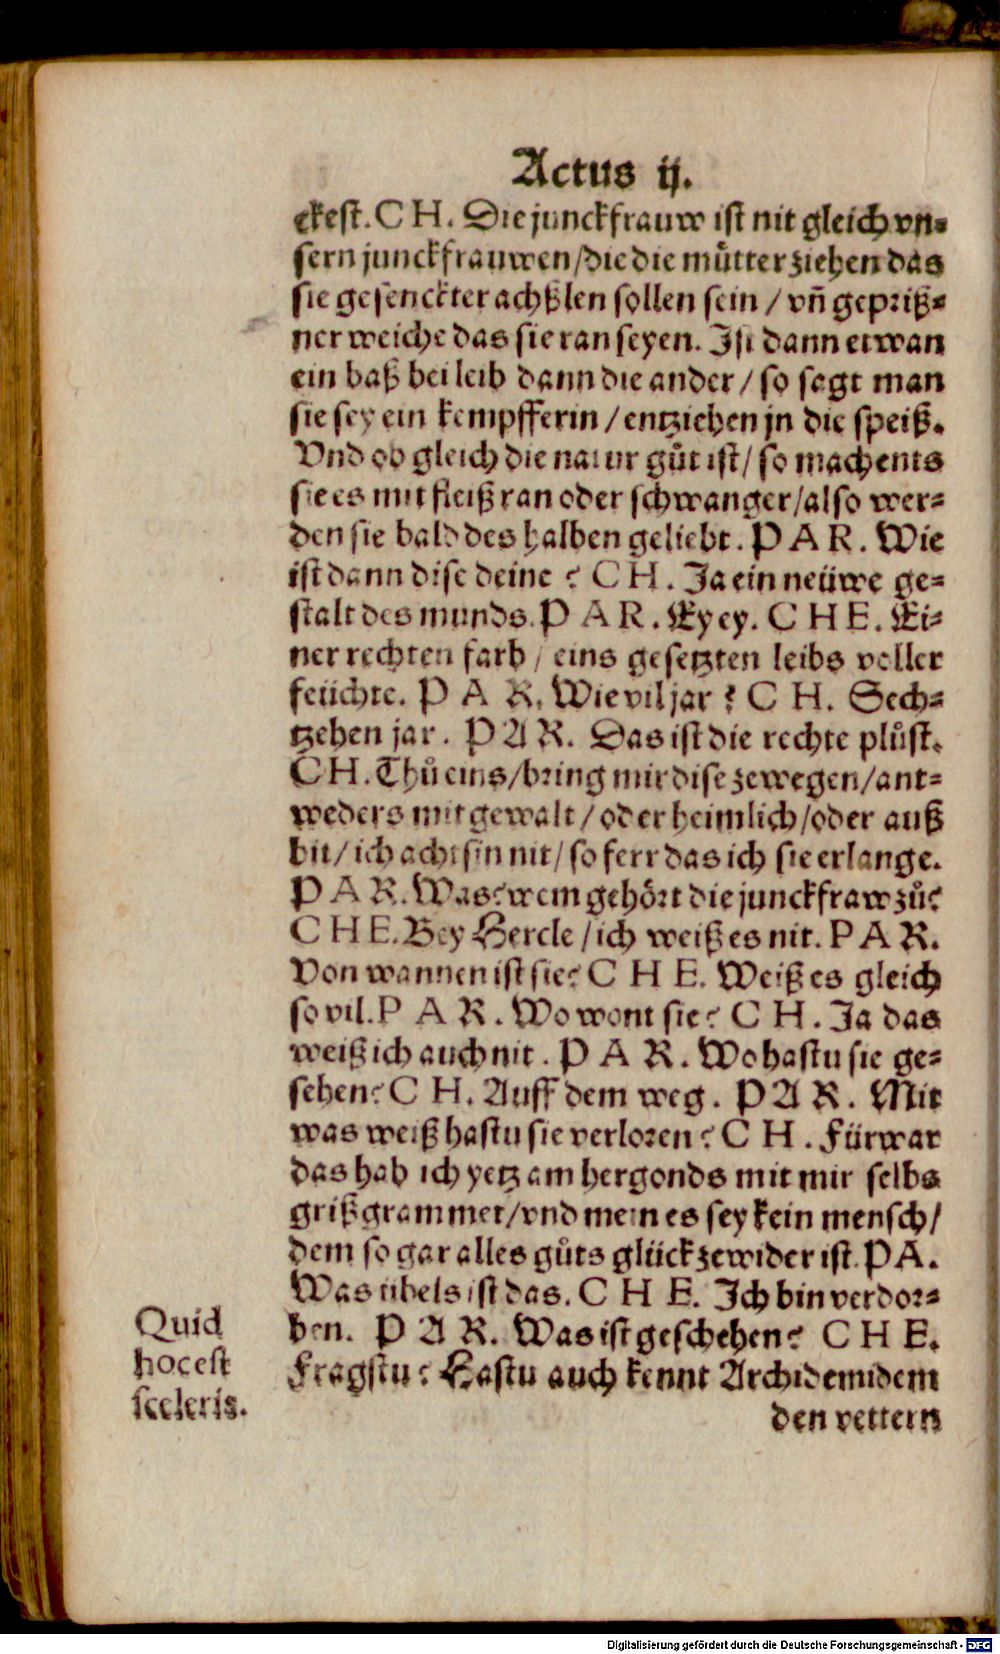 Actus ij.
ckest. C H. Die junckfrauw ist nit gleich vn-
sern junckfrauwen/die die můtter ziehen das
sie gesenckter achßlen sollen sein / vñ gepriß-
ner weiche das sie ran seyen. Ist dann etwan
ein baß bei leib dann die ander/ so sagt man
sie sey ein kempfferin / entziehen jn die speiß.
Vnd ob gleich die natur gůt ist/ so machents
sie es mit fleiß ran oder schwanger/also wer-
den sie bald des halben geliebt. P A R. Wie
ist dann dise deine ? C H. Ja ein neüwe ge-
stalt des munds. P A R. Ey ey. C H E. Ei-
ner rechten farb / eins gesetzten leibs voller
feüchte. P A R. Wie vil jar ? C H. Sech-
tzehen jar. P A R. Das ist die rechte plůst.
C H. Thů eins/bring mir dise zewegen/ant-
weders mit gewalt/ oder heimlich/oder auß
bit/ ich acht sin nit/ so ferr das ich sie erlange.
P A R. Was? wem gehört die junckfraw zů?
C H E. Bey Hercle / ich weiß es nit. P A R.
Von wannen ist sie? C H E. Weiß es gleich
so vil. P A R. Wo wont sie? C H. Ja das
weiß ich auch nit. P A R. Wo hastu sie ge-
sehen? C H. Auff dem weg. P A R. Mit
was weiß hastu sie verloren? C H. Fürwar
das hab ich yetz am hergonds mit mir selbs
grißgrammet/vnd mein es sey kein mensch/
dem so gar alles gůts glück zewider ist. P A.
Was übels ist das. C H E. Ich bin verdor-
ben. P A R. Was ist geschehen? C H E.
Fragstu? Hastu auch kennt Archidemidem
den vettern
Quid
hoc est
sceleris.
Digitalisierung gefördert durch die Deutsche Forschungsgemeinschaft - DFG